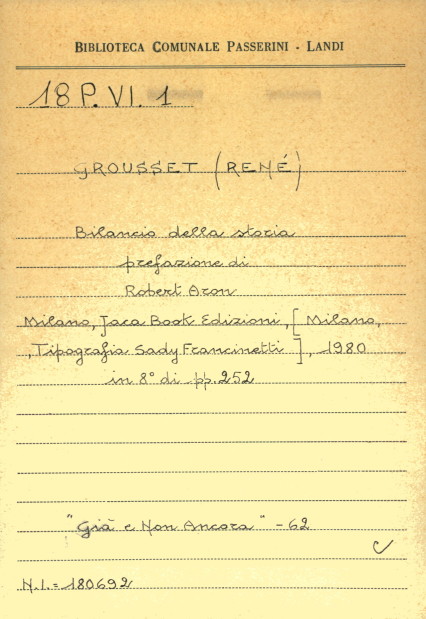 BIBLIOTECA COMUNALE PASSERINI - LANDI
18 P. VI. 1
GROUSSET (RENÉ)
Bilancio della storia
prefazione di
Robert Aron
Milano, Jaca Book Edizioni, [Milano,
, Tipografia Sady Francinetti], 1980
in 8° di pp. 252
"Già e Non Ancora" - 62
N.I. = 180692